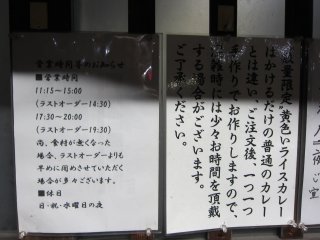 営業時間等のお知らせ
■営業時間
11:15～15:00
(ラストオーダー14:30)
17:30～20:00
(ラストオーダー19:30)
尚、食材が無くなった
場合、ラストオーダーよりも
早めに閉めさせていただく
場合が多々ございます。
■休日
日・祝・水曜日の夜
数量限定・黄色いライスカレー
はかけるだけの普通のカレー
とは違い、ご注文後、一つ一つ
手作りでお作りしますので、
混雑時には少々お時間を頂戴
する場合がございます。
ご了承ください。